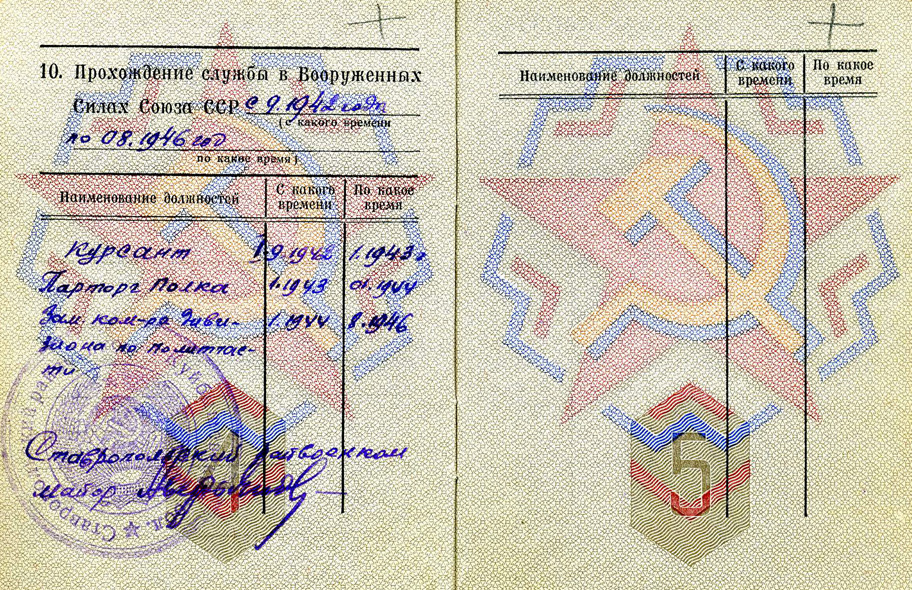 10. Прохождение службы в Вооруженных
Силах Союза ССР с 9.1942 года
(с какого времени
по 08.1946 год
по какое время)
Наименование должностей
С какого времени
По какое время
Курсант 1.9.1942 1.1943 г
Парторг Полка 1.1943 01.1944
Зам. ком-ра диви- 1.1944 8.1946
зиона по политчас-
ти
Ставропольский райвоенком
майор
4
Наименование должностей
С какого времени
По какое время
5